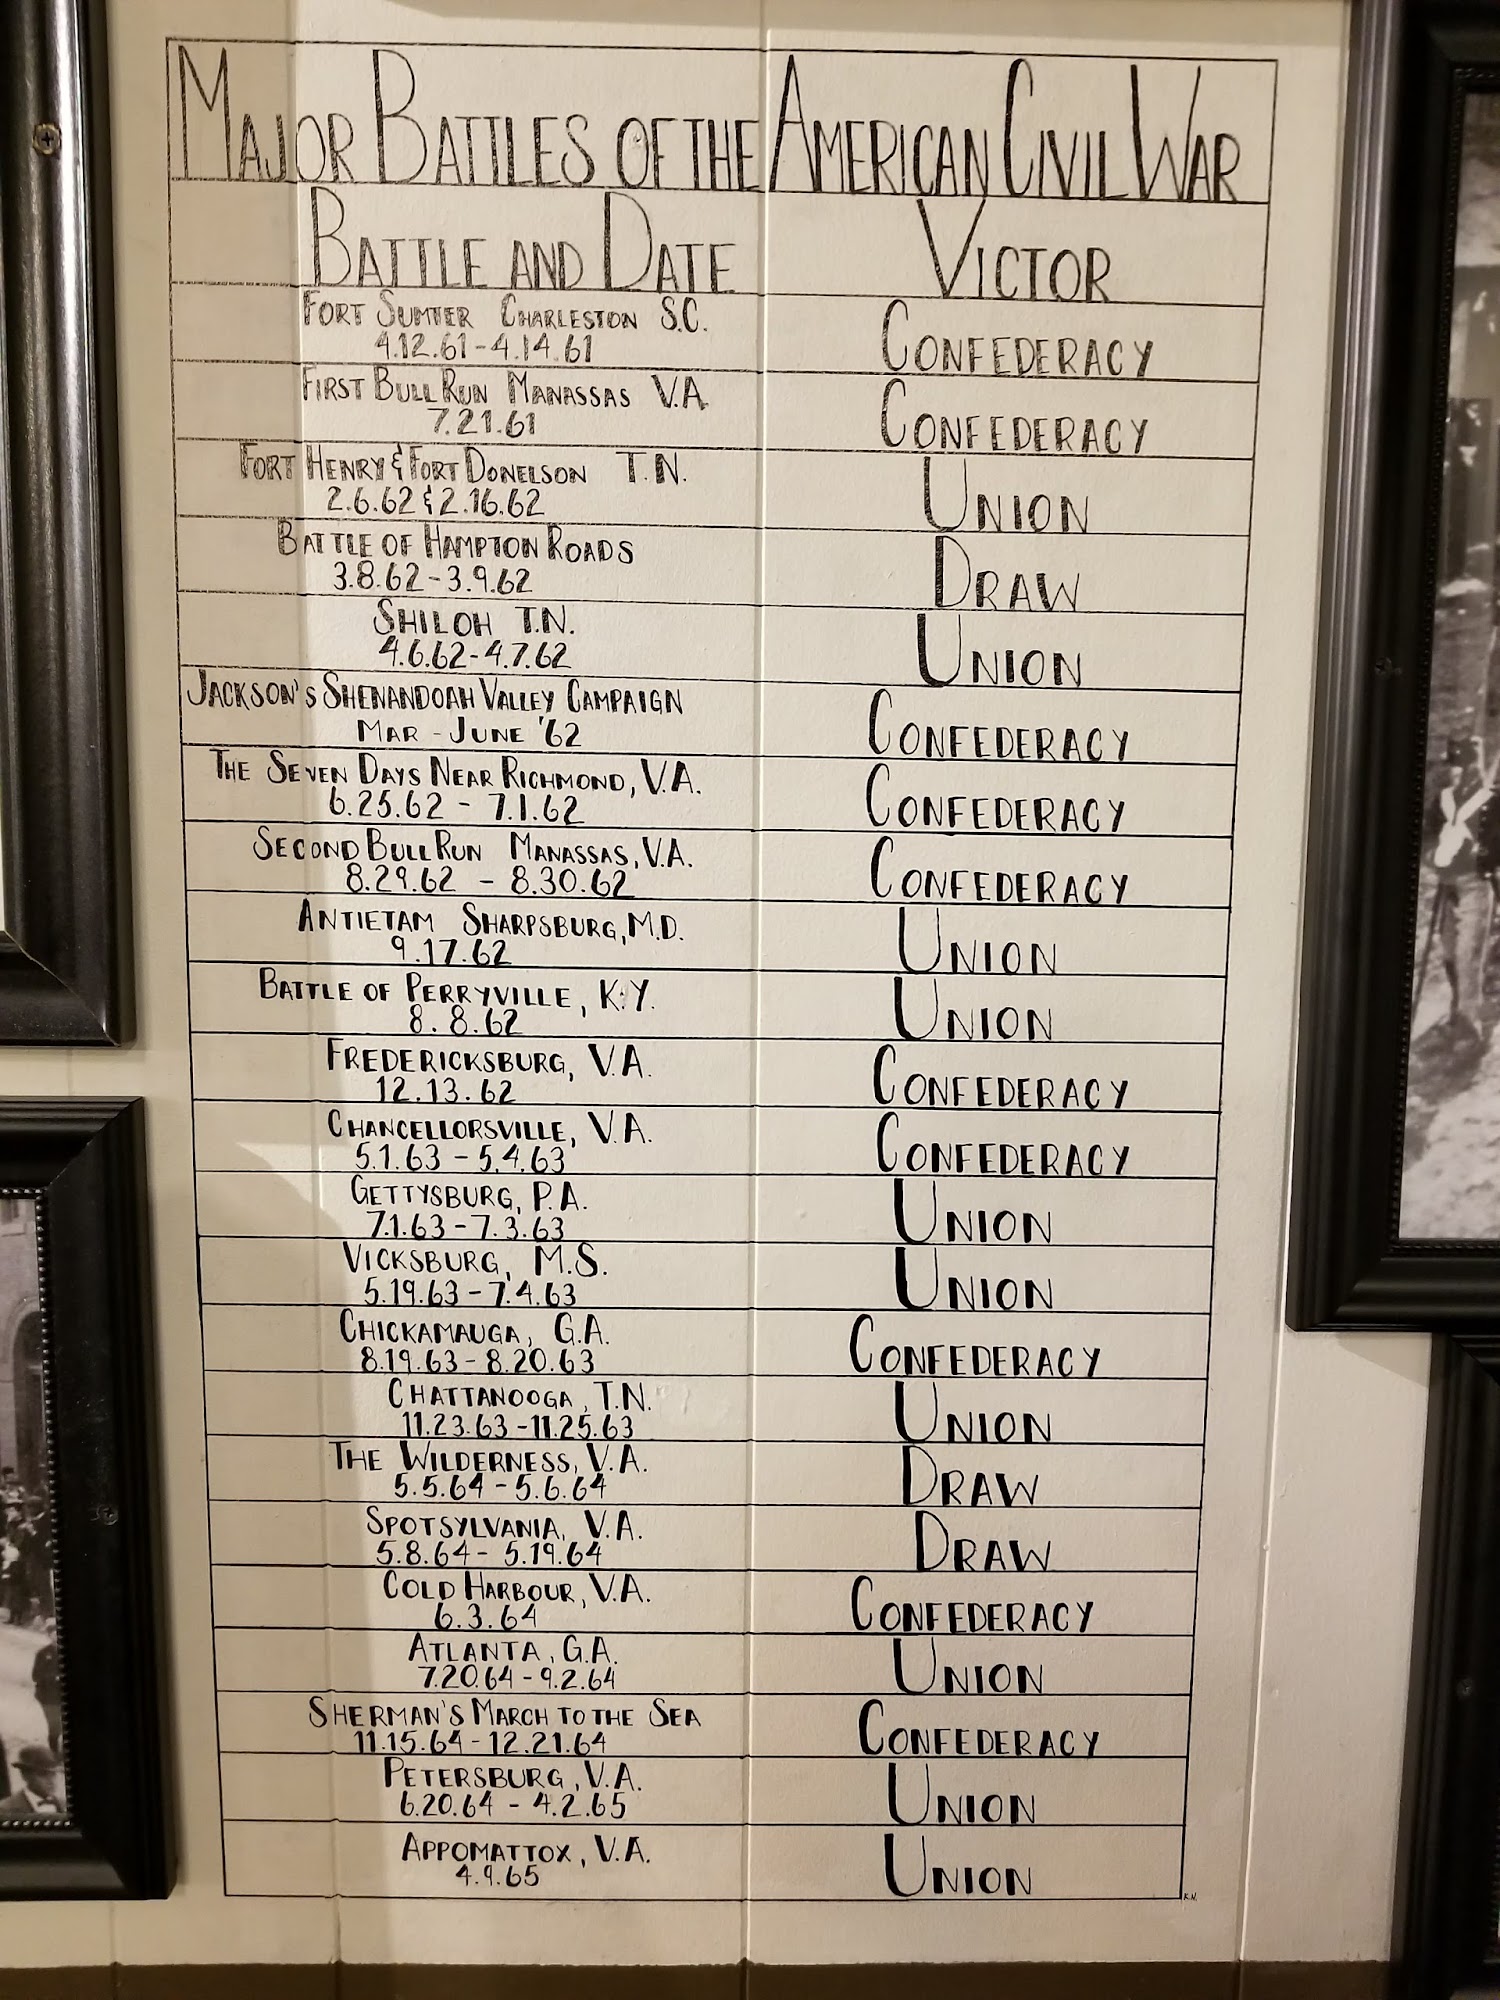 MAJOR BATTLES OF THE AMERICAN CIVIL WAR
BATTLE AND DATE VICTOR
FORT SUMTER CHARLESTON S.C.
4.12.61-4.14.61
CONFEDERACY
FIRST BULL RUN MANASSAS V.A.
7.21.61
CONFEDERACY
FORT HENRY & FORT DONELSON T.N.
2.6.62 & 2.16.62
UNION
BATTLE OF HAMPTON ROADS
3.8.62-3.9.62
DRAW
SHILOH T.N.
4.6.62-4.7.62
UNION
JACKSON'S SHENANDOAH VALLEY CAMPAIGN
MAR - JUNE '62
CONFEDERACY
THE SEVEN DAYS NEAR RICHMOND, V.A.
6.25.62 - 7.1.62
CONFEDERACY
SECOND BULL RUN MANASSAS, V.A.
8.29.62 - 8.30.62
CONFEDERACY
ANTIETAM SHARPSBURG, M.D.
9.17.62
UNION
BATTLE OF PERRYVILLE, K.Y.
8.8.62
UNION
FREDERICKSBURG, V.A.
12.13.62
CONFEDERACY
CHANCELLORSVILLE, V.A.
5.1.63 - 5.4.63
CONFEDERACY
GETTYSBURG, P.A.
7.1.63 - 7.3.63
UNION
VICKSBURG, M.S.
5.19.63 - 7.4.63
UNION
CHICKAMAUGA, G.A.
8.19.63 - 8.20.63
CONFEDERACY
CHATTANOOGA, T.N.
11.23.63 - 11.25.63
UNION
THE WILDERNESS, V.A.
5.5.64 - 5.6.64
DRAW
SPOTSYLVANIA, V.A.
5.8.64 - 5.19.64
DRAW
COLD HARBOUR, V.A.
6.3.64
CONFEDERACY
ATLANTA, G.A.
7.20.64 - 9.2.64
UNION
SHERMAN'S MARCH TO THE SEA
11.15.64 - 12.21.64
CONFEDERACY
PETERSBURG, V.A.
6.20.64 - 4.2.65
UNION
APPOMATTOX, V.A.
4.9.65
UNION
K.N.